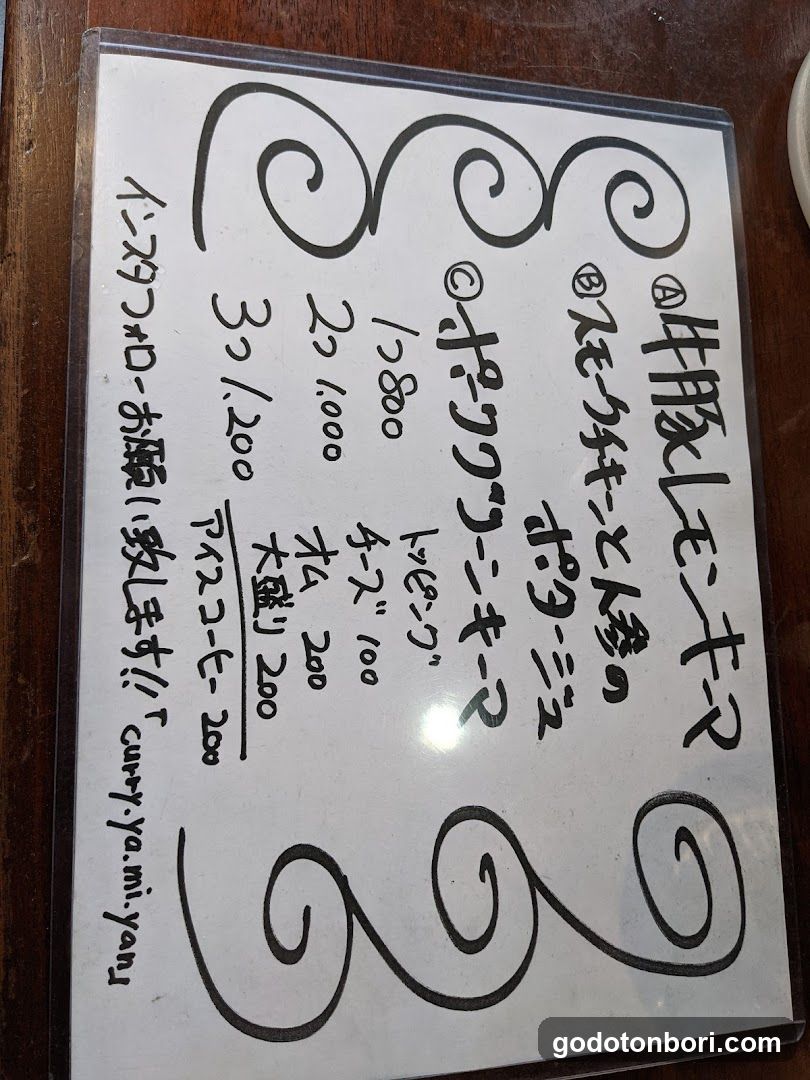 Ⓐ牛豚レモンキーマ
Ⓑスモークチキンと人参の
ポタージュ
Ⓒポークグリーンキーマ
1つ800
2つ1.000
3つ1.200
トッピング
チーズ 100
オム 200
大盛り 200
アイスコーヒー 200
インスタフォローお願い致します!!「curry.ya.mi.yan」
godotonbori.com